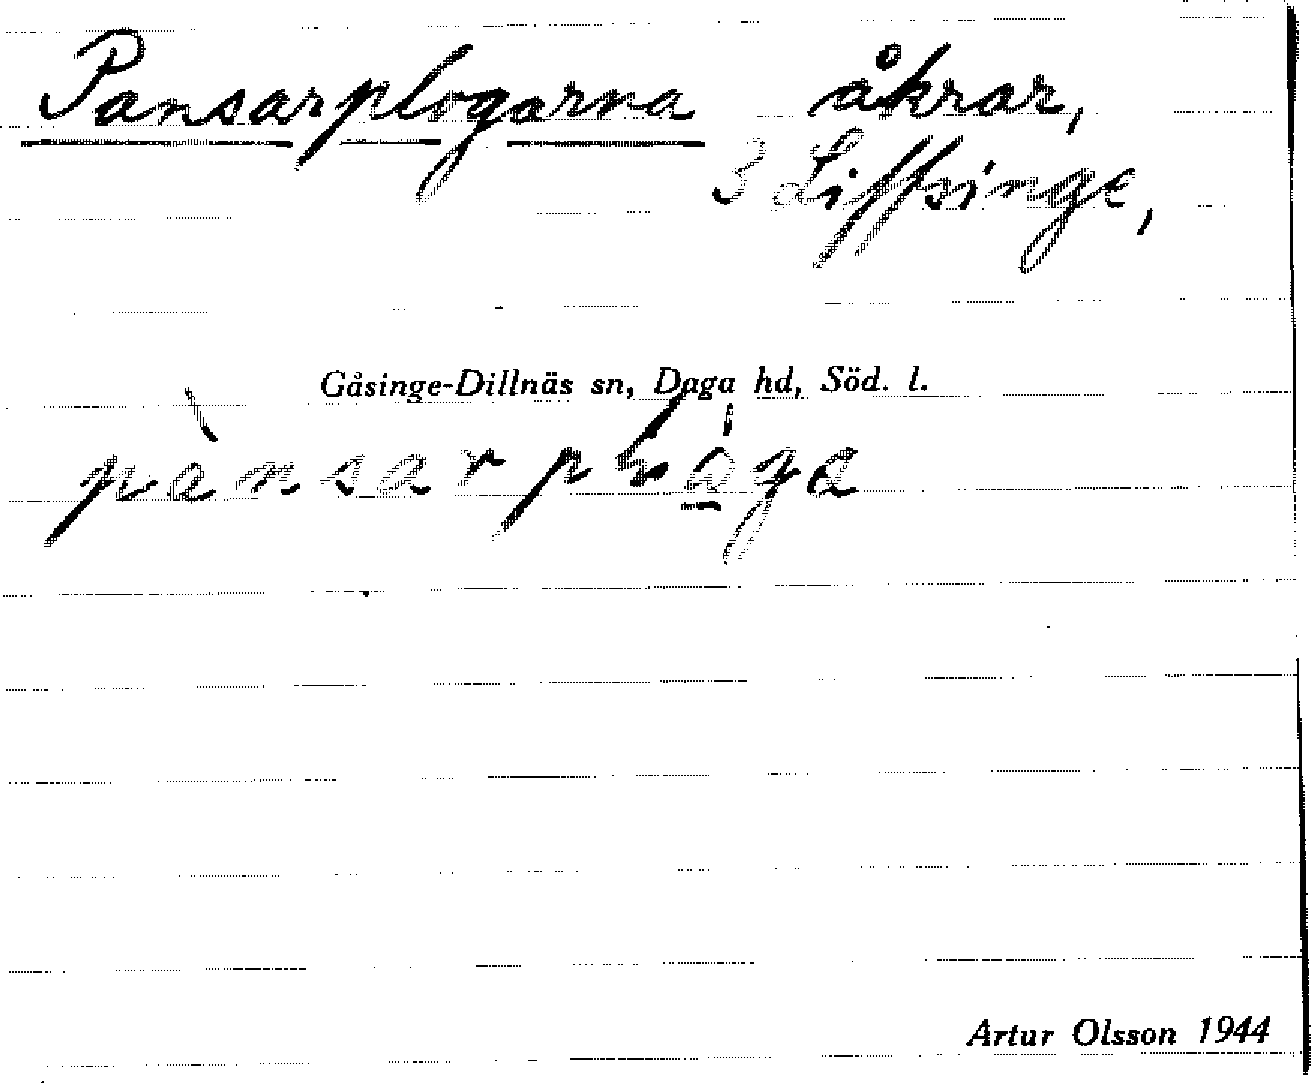 Pansarplogarna åkrar,
3 Liffsinge,
Gåsinge-Dillnäs sn, Daga hd, Söd. l.
pànsar
Artur Olsson 1944